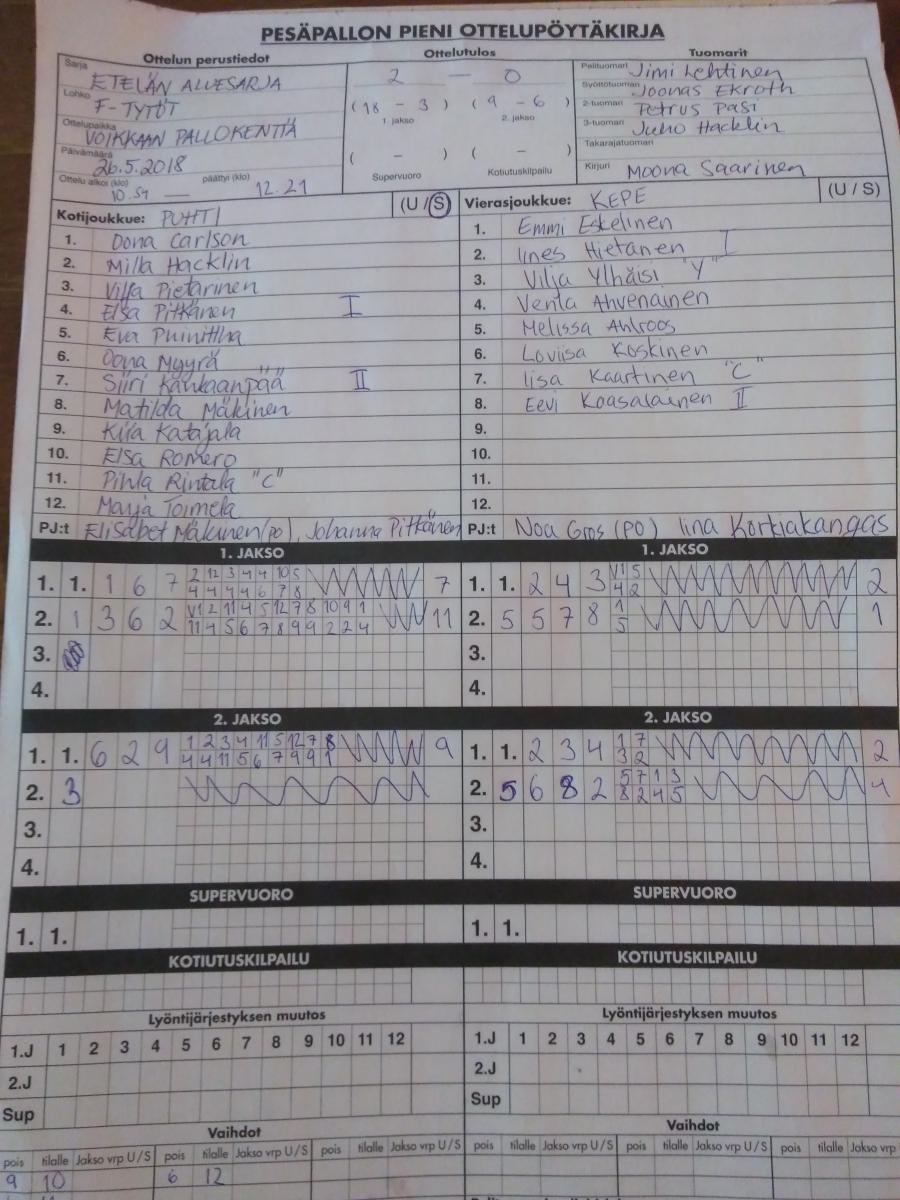 PESÄPALLON PIENI OTTELUPÖYTÄKIRJA
Ottelun perustiedot
Sarja ETELÄN ALUESARJA
Lohko F-TYTÖT
Ottelupaikka VOIKKAAN PALLOKENTTÄ
Päivämäärä 26.5.2018
Ottelu alkoi (klo) 10.54 — päättyi (klo) 12.21
Ottelutulos
2 — 0
(18 - 3) (9 - 6)
1. jakso 2. jakso
( - ) ( - )
Supervuoro Kotiutuskilpailu
Tuomarit
Pelituomari Jimi Lehtinen
Syöttötuomari Joonas Ekroth
2-tuomari Petrus Pasi
3-tuomari Juho Hacklin
Takarajatuomari
Kirjuri Moona Saarinen
Kotijoukkue: PUHTI (U / S)
1. Oona Carlson
2. Milla Hacklin
3. Vilja Pietarinen
4. Elsa Pitkänen I
5. Eva
6. Oona Myyrä
7. Siiri Kankaanpää II
8. Matilda Mäkinen
9. Kiia Katajala
10. Elsa Romero
11. Pihla Rintala "C"
12. Marja Toimela
PJ:t Elisabet Mäkinen (PO), Johanna Pitkänen
Vierasjoukkue: KEPE (U / S)
1. Emmi Eskelinen
2. Iines Hietanen I
3. Vilja Ylhäisi "Y"
4. Venla Ahvenainen
5. Melissa Ahlroos
6. Loviisa Koskinen
7. Iisa Kaartinen "C"
8. Eevi Kaasalainen II
9.
10.
11.
12.
PJ:t Noa Gros (PO) Iina Korkiakangas
1. JAKSO
1. 1. 1 6 7 2 12 3 4 4 10 5 7
4 4 4 4 6 7 8
2. 1 3 6 2 V1 2 11 4 5 12 7 8 10 9 1 11
11 4 5 6 7 8 9 9 2 2 4
3.
4.
1. JAKSO
1. 1. 2 4 3 V1 5 2
4 2
2. 5 5 7 8 1 1
5
3.
4.
2. JAKSO
1. 1. 6 2 9 1 2 3 4 11 5 12 7 8 9
4 4 11 5 6 7 9 9 1
2. 3
3.
4.
2. JAKSO
1. 1. 2 3 4 1 7 2
3 2
2. 5 6 8 2 5 7 1 3 4
8 2 4 5
3.
4.
SUPERVUORO
1. 1.
SUPERVUORO
1. 1.
KOTIUTUSKILPAILU
KOTIUTUSKILPAILU
Lyöntijärjestyksen muutos
1.J 1 2 3 4 5 6 7 8 9 10 11 12
2.J
Sup
Lyöntijärjestyksen muutos
1.J 1 2 3 4 5 6 7 8 9 10 11 12
2.J
Sup
Vaihdot
pois tilalle Jakso vrp U / S pois tilalle Jakso vrp U / S pois tilalle Jakso vrp U / S
9 10 6 12
Vaihdot
pois tilalle Jakso vrp U / S pois tilalle Jakso vrp U / S pois tilalle Jakso vrp